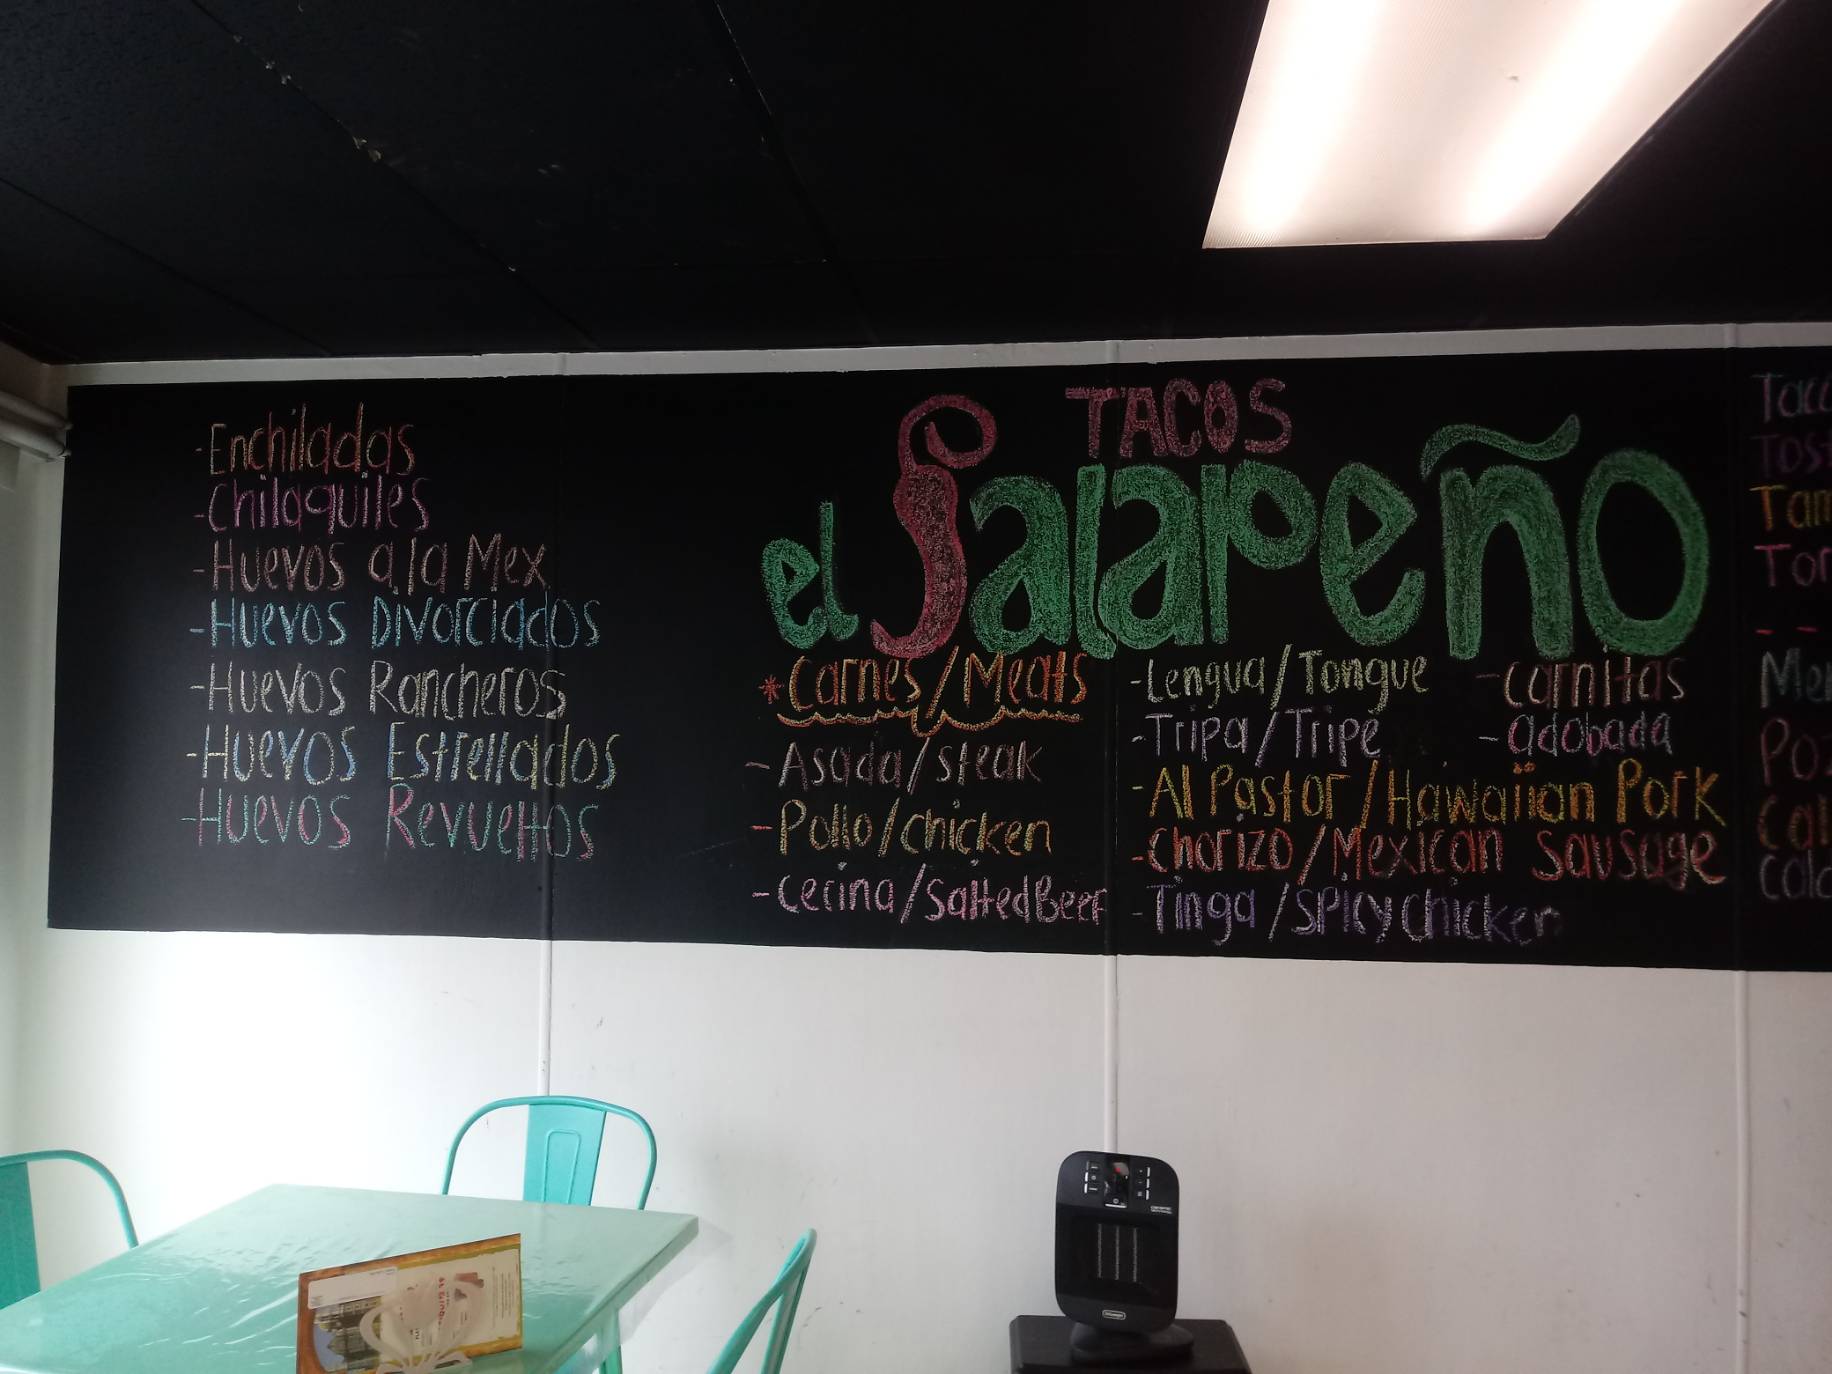 -Enchiladas
-Chilaquiles
-Huevos a la Mex
-Huevos Divorciados
-Huevos Rancheros
-Huevos Estrellados
-Huevos Revueltos
TACOS
el Jalapeño
*Carnes/Meats
-Asada/steak
-Pollo/chicken
-Cecina/SaltedBeef
-Lengua/Tongue
-Tripa/Tripe
-Al Pastor/Hawaiian Pork
-Chorizo/Mexican Sausage
-Tinga/Spicy chicken
-Carnitas
-adobada